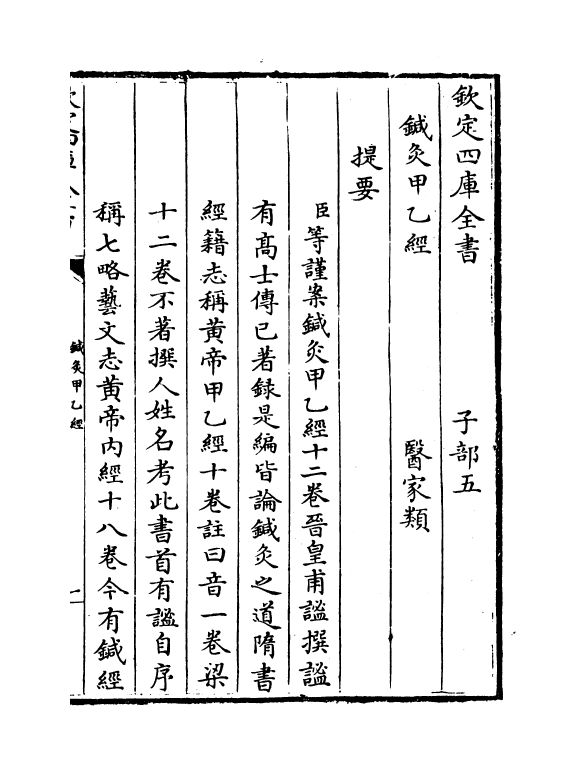 欽定四庫全書 子部五
鍼灸甲乙經 醫家類
提要
臣等謹案鍼灸甲乙經十二卷晉皇甫謐撰謐
有髙士傳已著録是編皆論鍼灸之道隋書
經籍志稱黄帝甲乙經十卷註曰音一卷梁
十二卷不著撰人姓名考此書首有謐自序
稱七略藝文志黄帝内經十八卷今有鍼經
鍼灸甲乙經